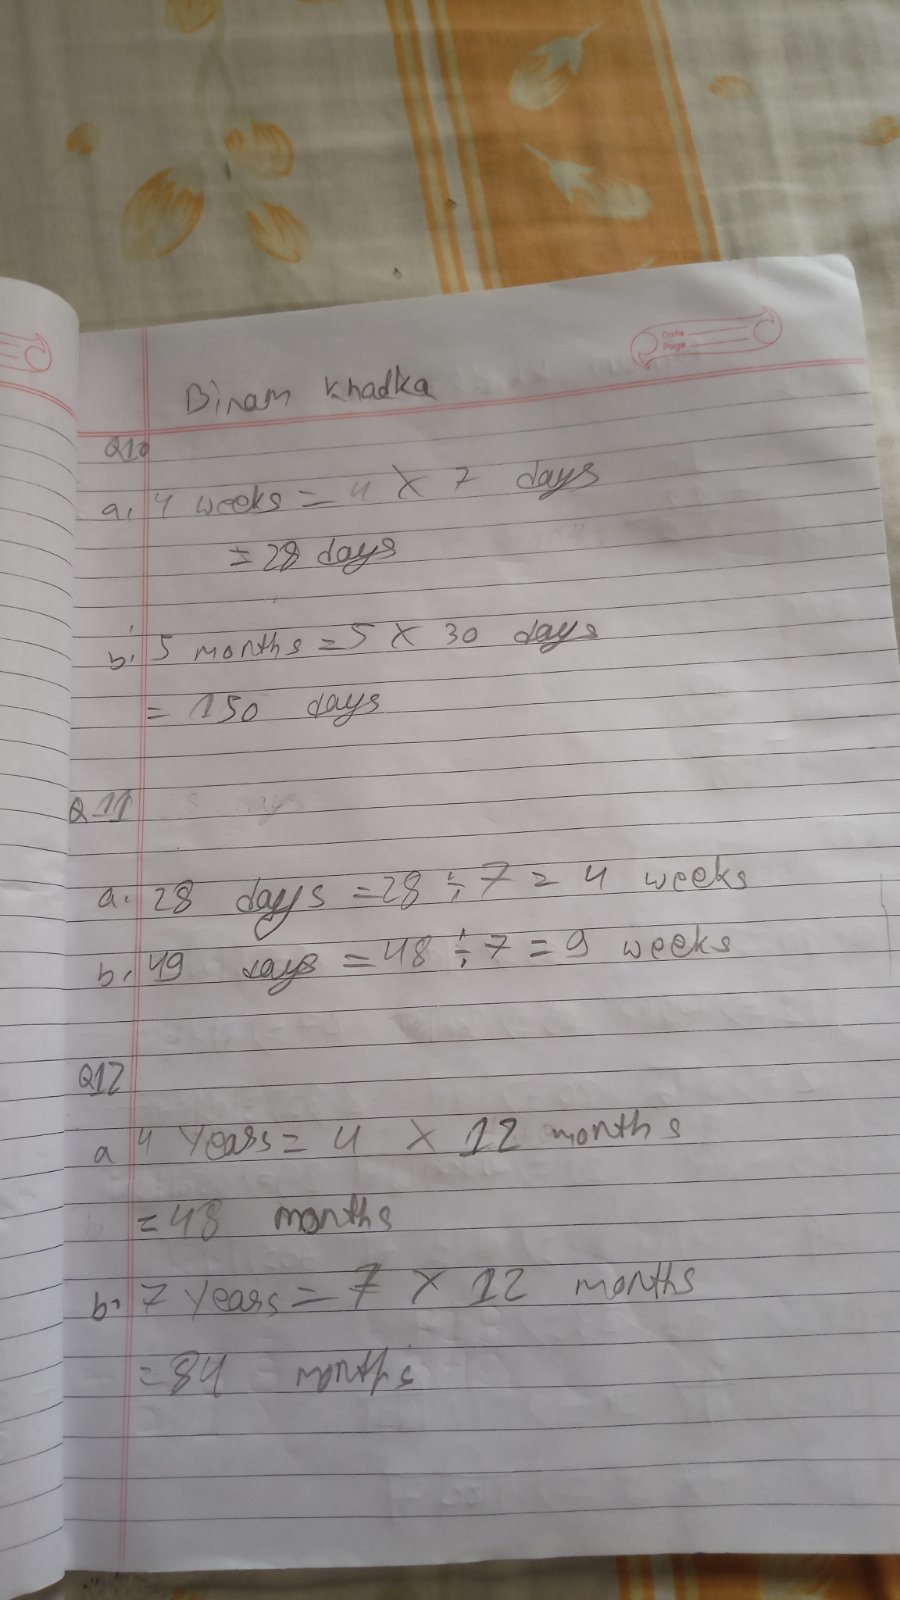 Date
Page
Binam Khadka
Q10
a. 4 weeks = 4 × 7 days
= 28 days
b. 5 months = 5 × 30 days
= 150 days
Q 11
a. 28 days = 28 ÷ 7 = 4 weeks
b. 49 days = 48 ÷ 7 = 9 weeks
Q12
a 4 years = 4 × 12 months
= 48 months
b. 7 years = 7 × 12 months
= 84 months